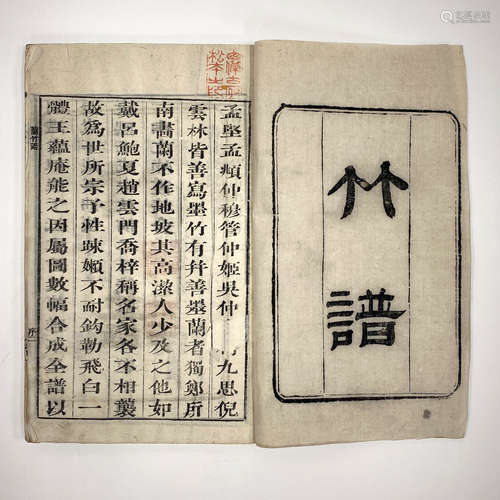 竹譜
孟堅孟頫仲穆管仲姬吳仲
九思倪
雲林皆善寫墨竹有并善墨蘭者獨鄭所
南畵蘭不作地坡其高潔人少及之他如
戴呂鮑夏趙雲門喬梓稱名家各不相襲
故爲世所宗予性疎嬾不耐鈎勒飛白一
體王蘊庵能之因屬圖數幅合成全譜以
蘭竹譜
序